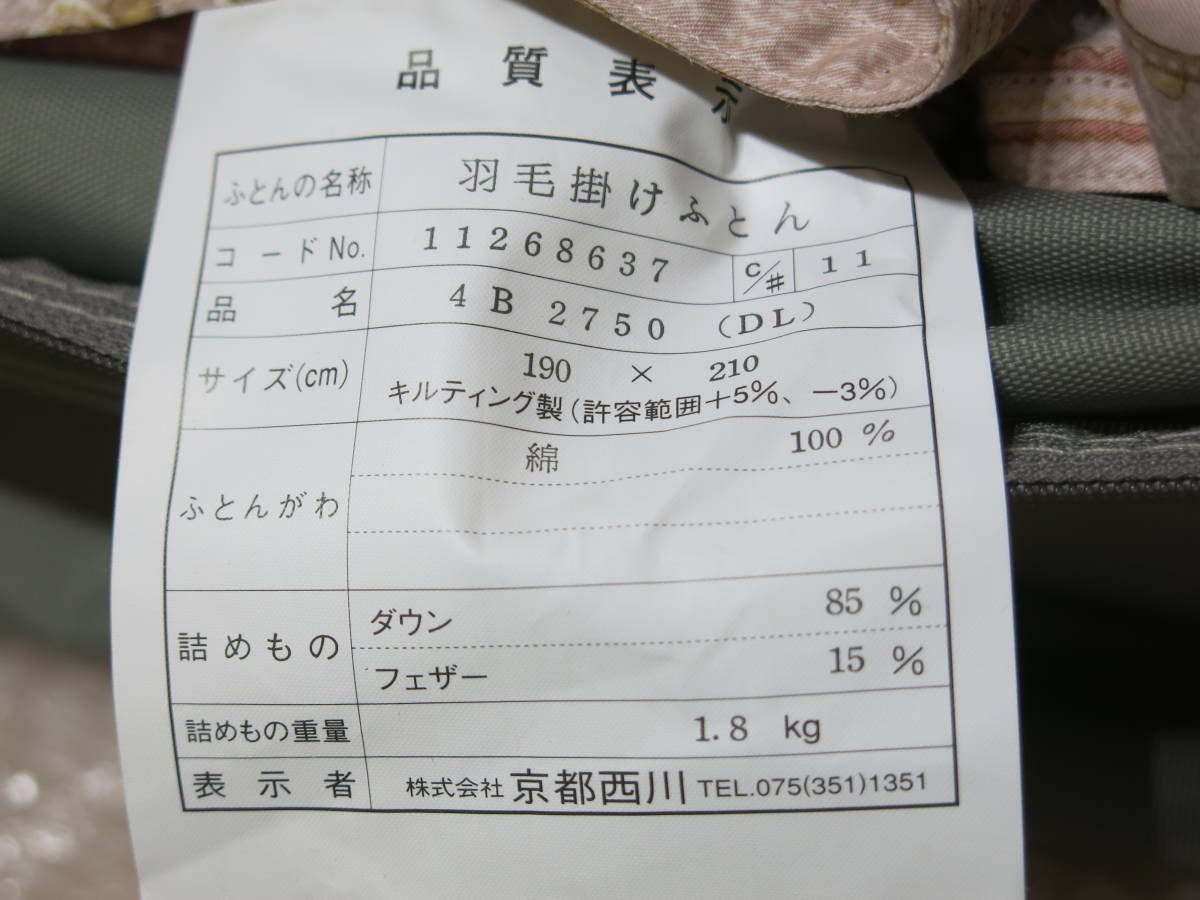 品質表示
ふとんの名称 羽毛掛けふとん
コードNo. 11268637 C/# 11
品名 4B 2750 (DL)
サイズ(cm) 190 × 210
キルティング製(許容範囲+5%、−3%)
ふとんがわ 綿 100 %
詰めもの ダウン 85 %
フェザー 15 %
詰めもの重量 1.8 kg
表示者 株式会社 京都西川 TEL.075(351)1351